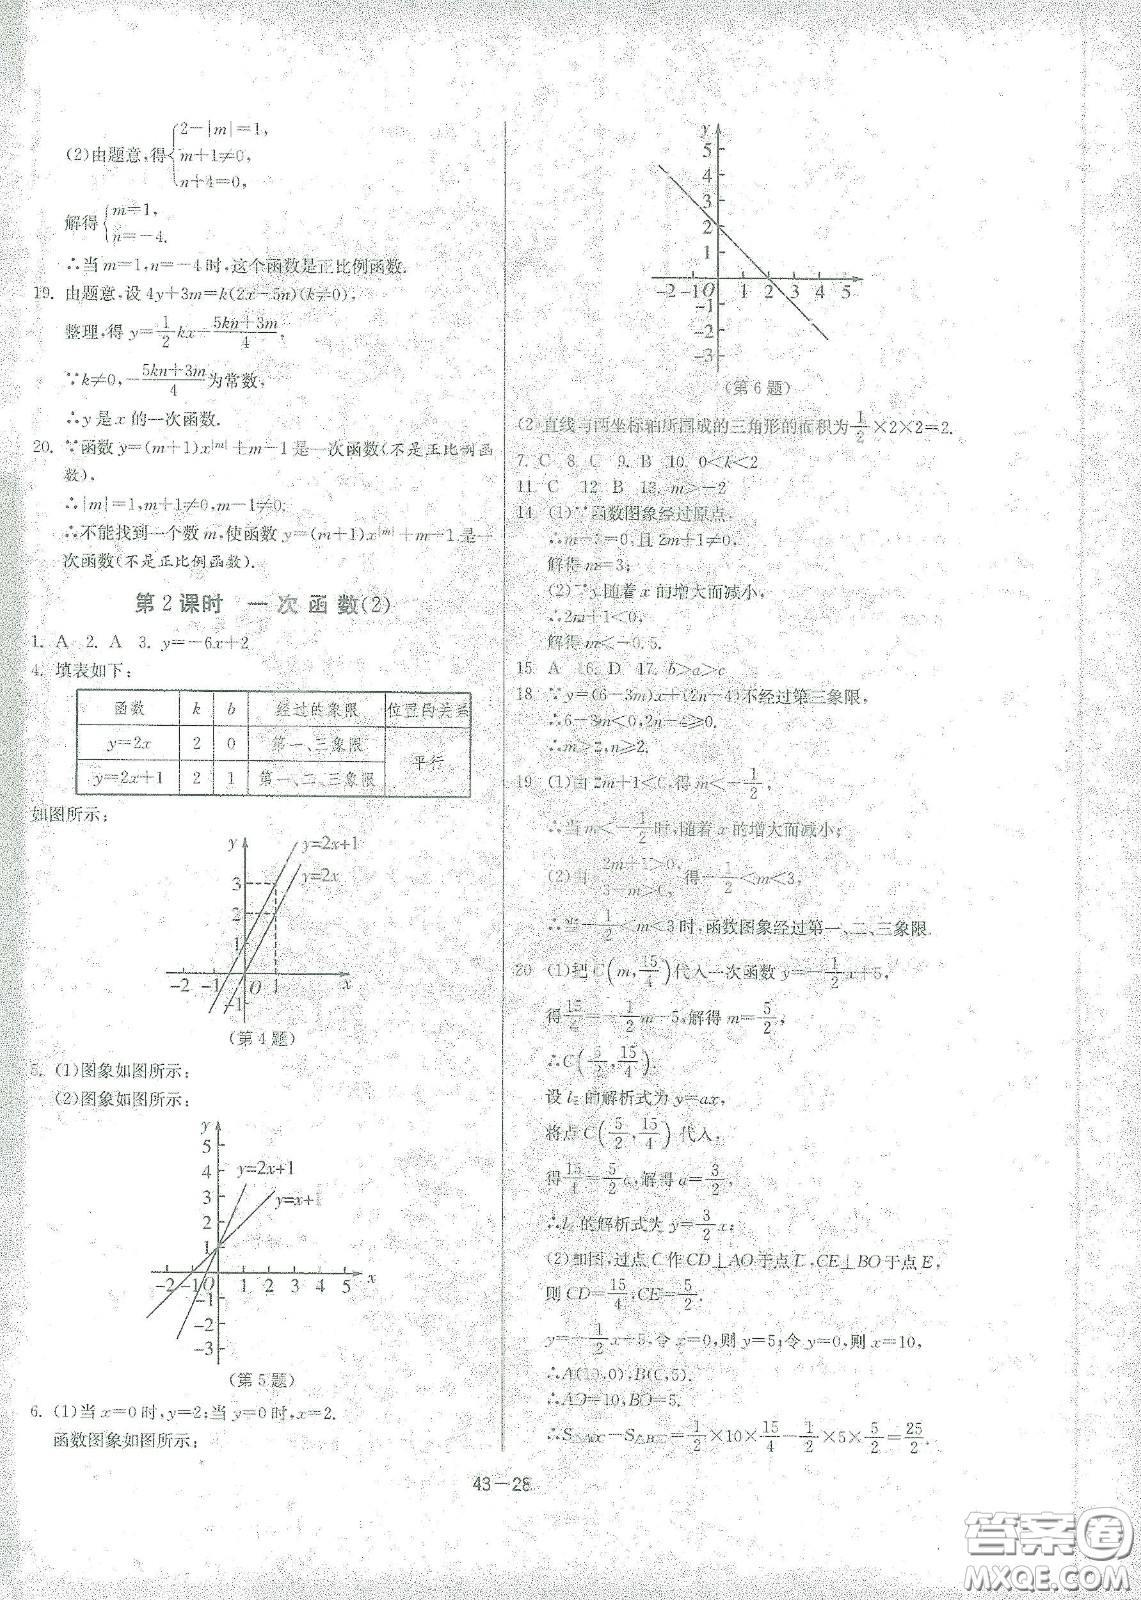 (2)由题意,得{2-|m|=1,
m+1≠0,
n+4=0,
解得{m=1,
n=-4.
∴当m=1,n=-4时,这个函数是正比例函数.
19. 由题意,设4y+3m=k(2x-5n)(k≠0),
整理,得y=1/2kx-(5kn+3m)/4,
∵k≠0,-(5kn+3m)/4为常数,
∴y是x的一次函数.
20. ∵函数y=(m+1)x^|m|+m-1是一次函数(不是正比例函
数),
∴|m|=1,m+1≠0,m-1≠0.
∴不能找到一个数m,使函数y=(m+1)x^|m|+m-1是一
次函数(不是正比例函数).
第2课时 一次函数(2)
1. A 2. A 3. y=-6x+2
4. 填表如下:
函数 k b 经过的象限 位置的关系
y=2x 2 0 第一、三象限 平行
y=2x+1 2 1 第一、二、三象限
如图所示:
y y=2x+1
y=2x
3
2
1
-2 -1 O 1 x
-1
(第4题)
5. (1)图象如图所示:
(2)图象如图所示:
y
5
4 y=2x+1
3 y=x+1
2
1
-2 -1 O 1 2 3 4 5 x
-1
-2
-3
(第5题)
6. (1)当x=0时,y=2;当y=0时,x=2.
函数图象如图所示:
y
5
4
3
2
1
-2 -1 O 1 2 3 4 5
-1
-2
-3
(第6题)
(2)直线与两坐标轴所围成的三角形的面积为1/2×2×2=2.
7. C 8. C 9. B 10. 0<k<2
11. C 12. B 13. m>-2
14. (1)∵函数图象经过原点,
∴m-3=0,且2m+1≠0,
解得m=3;
(2)∵y随着x的增大而减小,
∴2m+1<0,
解得m<-0.5.
15. A 16. D 17. b>a>c
18. ∵y=(6-3m)x+(2n-4)不经过第三象限,
∴6-3m<0,2n-4≥0.
∴m>2,n≥2.
19. (1)由2m+1<0,得m<-1/2,
∴当m<-1/2时,随着x的增大而减小;
(2)由{2m+1>0,
3-m>0, 得-1/2<m<3,
∴当-1/2<m<3时,函数图象经过第一、二、三象限.
20. (1)把C(m,15/4)代入一次函数y=-1/2x+5,
得15/4=-1/2m+5,解得m=5/2,
∴C(5/2,15/4).
设l₂的解析式为y=ax,
将点C(5/2,15/4)代入,
得15/4=5/2a,解得a=3/2,
∴l₂的解析式为y=3/2x;
(2)如图,过点C作CD⊥AO于点D,CE⊥BO于点E,
则CD=15/4,CE=5/2.
y=-1/2x+5,令x=0,则y=5;令y=0,则x=10,
∴A(10,0),B(0,5).
∴AO=10,BO=5.
∴S△AOC-S△BOC=1/2×10×15/4-1/2×5×5/2=25/2.
43-28
答案卷
MXQE.COM